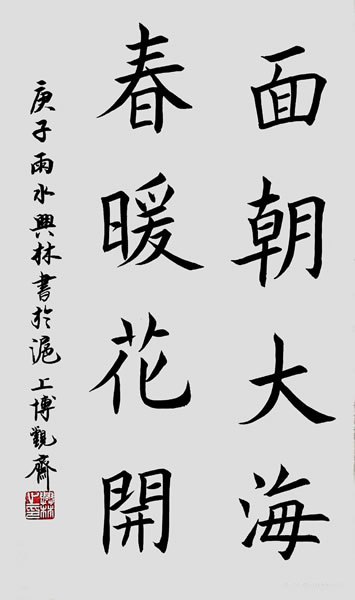 面朝大海
春暖花開
庚子雨水興林書於滬上博觀齋